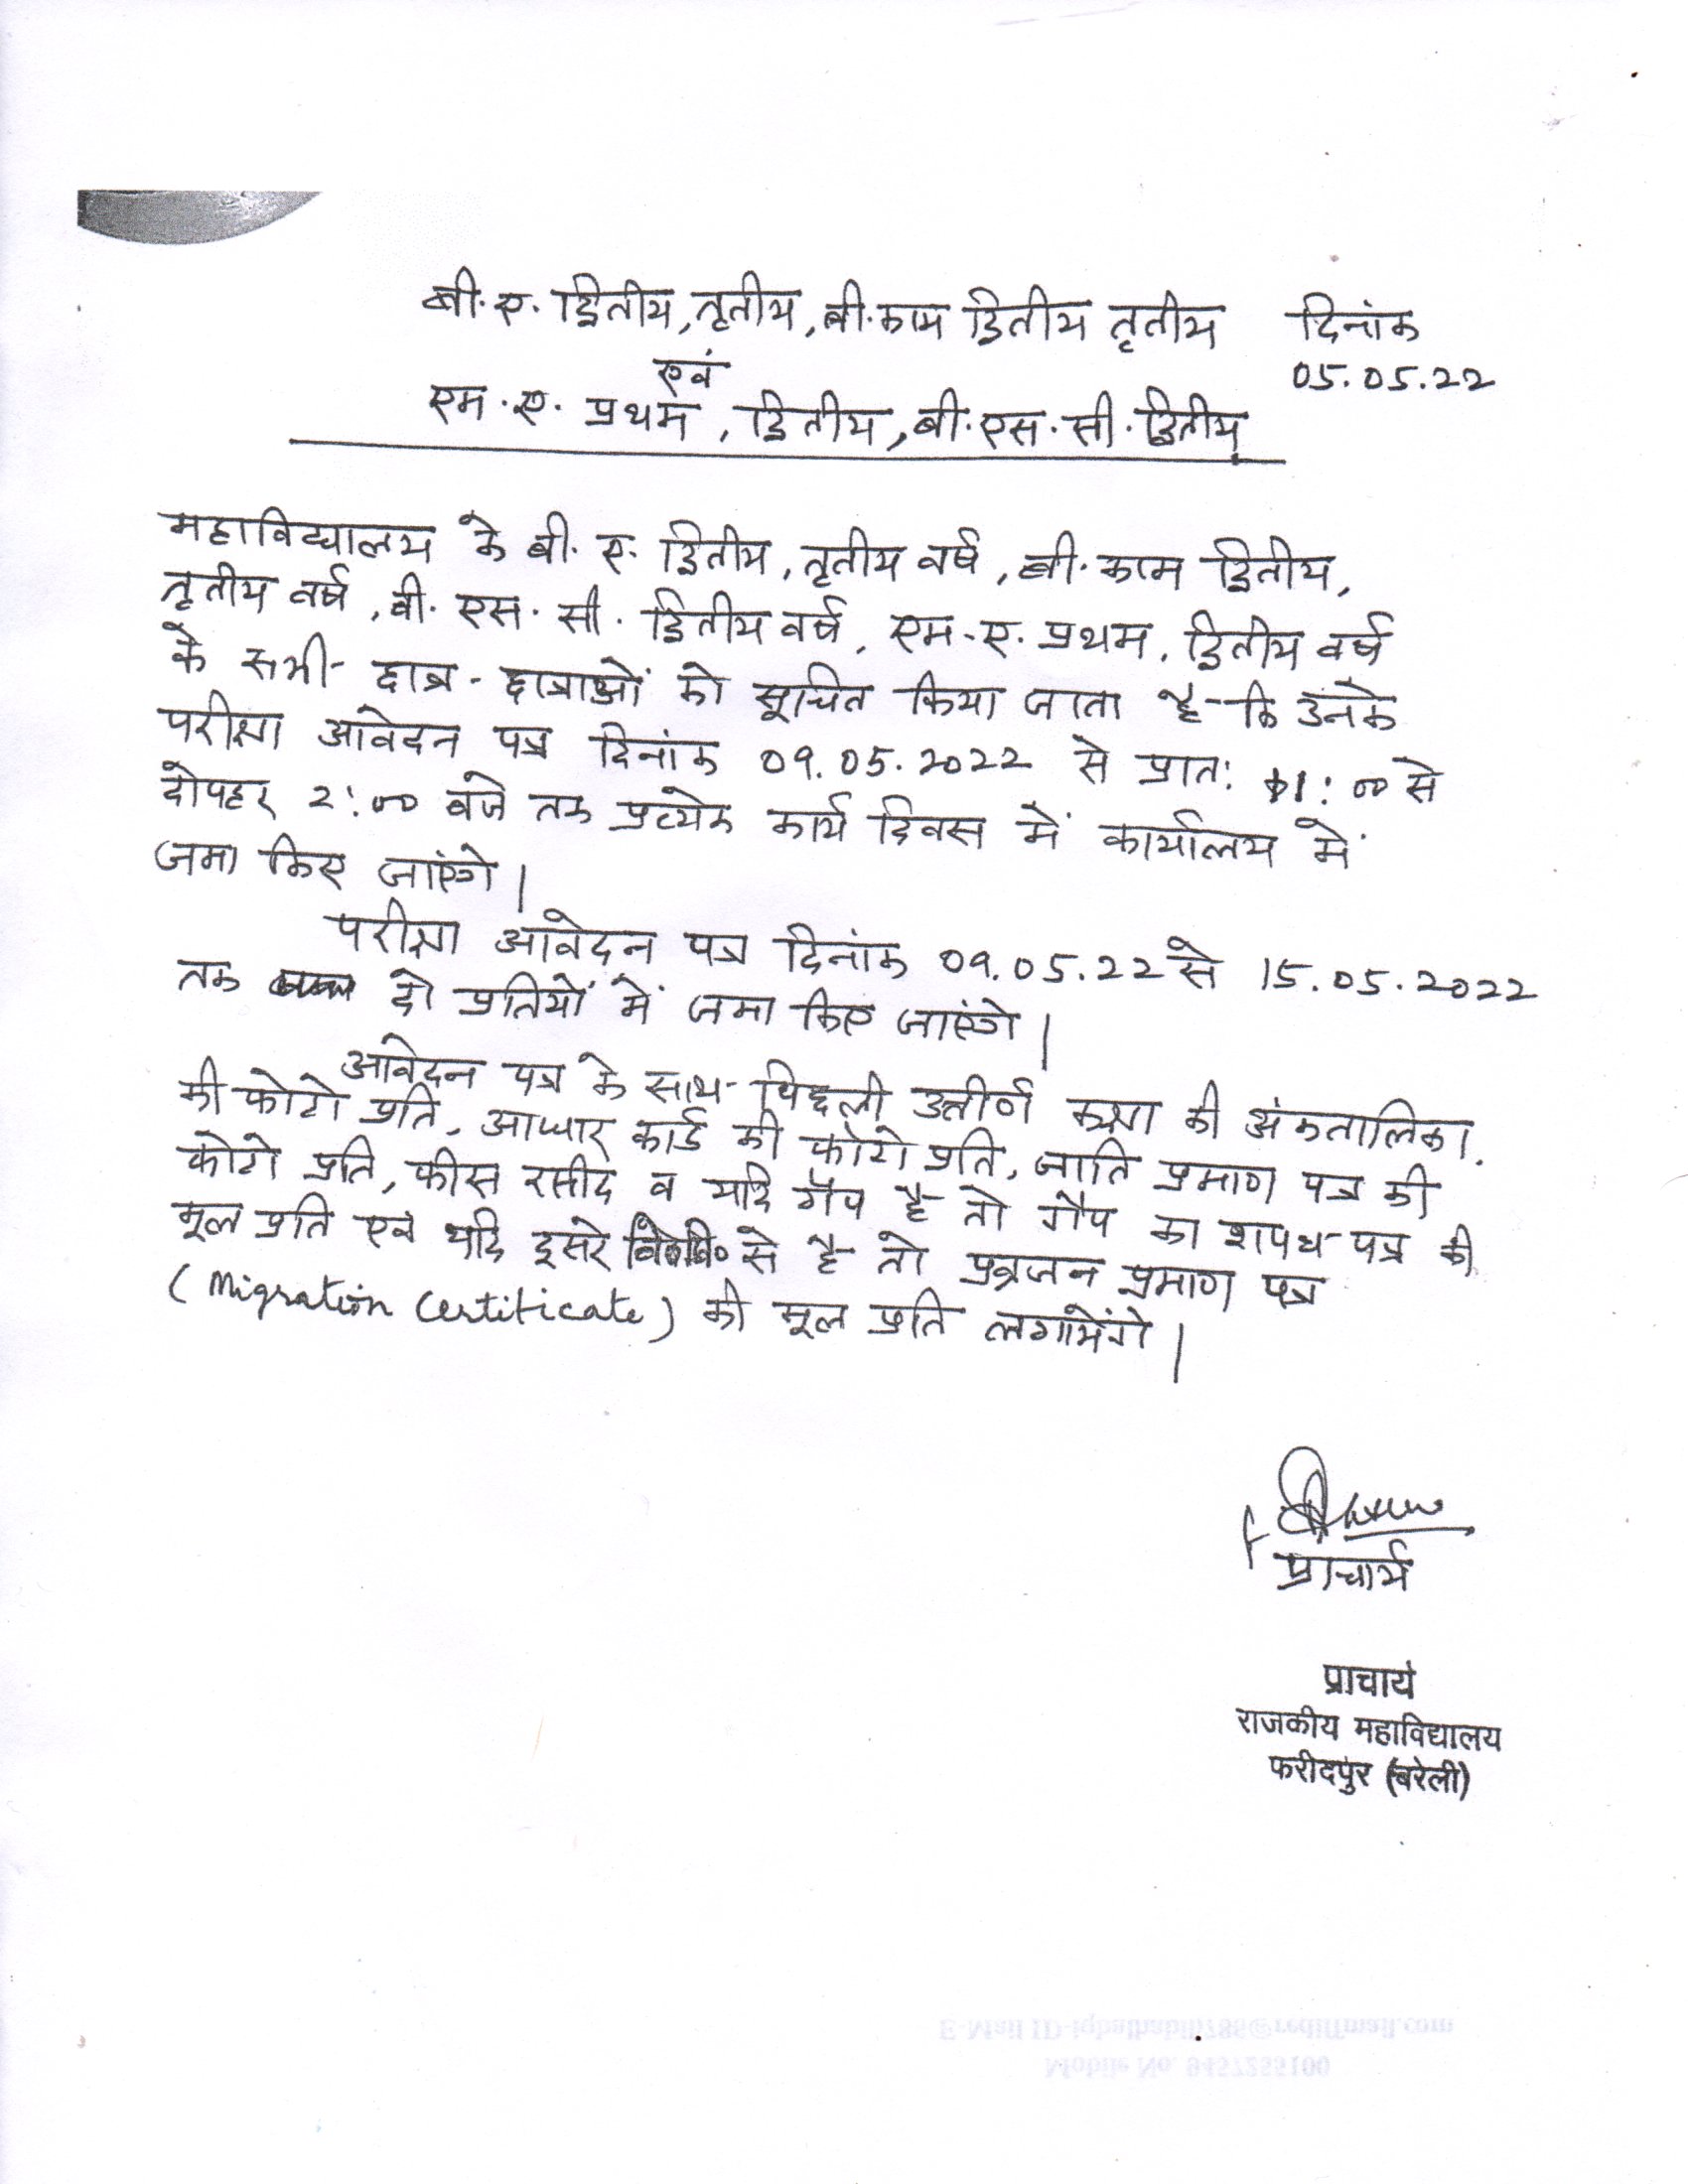 बी.ए. द्वितीय, तृतीय, बी.काम द्वितीय तृतीय दिनांक
05.05.22
एवं
एम.ए. प्रथम, द्वितीय, बी.एस.सी. द्वितीय
महाविद्यालय के बी.ए. द्वितीय, तृतीय वर्ष, बी.काम द्वितीय,
तृतीय वर्ष, बी.एस.सी. द्वितीय वर्ष, एम.ए. प्रथम, द्वितीय वर्ष
के सभी छात्र-छात्राओं को सूचित किया जाता है कि उनके
परीक्षा आवेदन पत्र दिनांक 09.05.2022 से प्रात: 11:00 से
दोपहर 2:00 बजे तक प्रत्येक कार्य दिवस में कार्यालय में
जमा किए जाएंगे।
परीक्षा आवेदन पत्र दिनांक 09.05.22 से 15.05.2022
तक दो प्रतियों में जमा किए जाएंगे।
आवेदन पत्र के साथ पिछली उत्तीर्ण कक्षा की अंकतालिका
की फोटो प्रति, आधार कार्ड की फोटो प्रति, जाति प्रमाण पत्र की
फोटो प्रति, फीस रसीद व यदि गैप है तो गैप का शपथ-पत्र की
मूल प्रति एवं यदि दूसरे वि०वि० से है तो प्रव्रजन प्रमाण पत्र
(Migration Certificate) की मूल प्रति लगायेंगे।
प्राचार्य
प्राचार्य
राजकीय महाविद्यालय
फरीदपुर (बरेली)